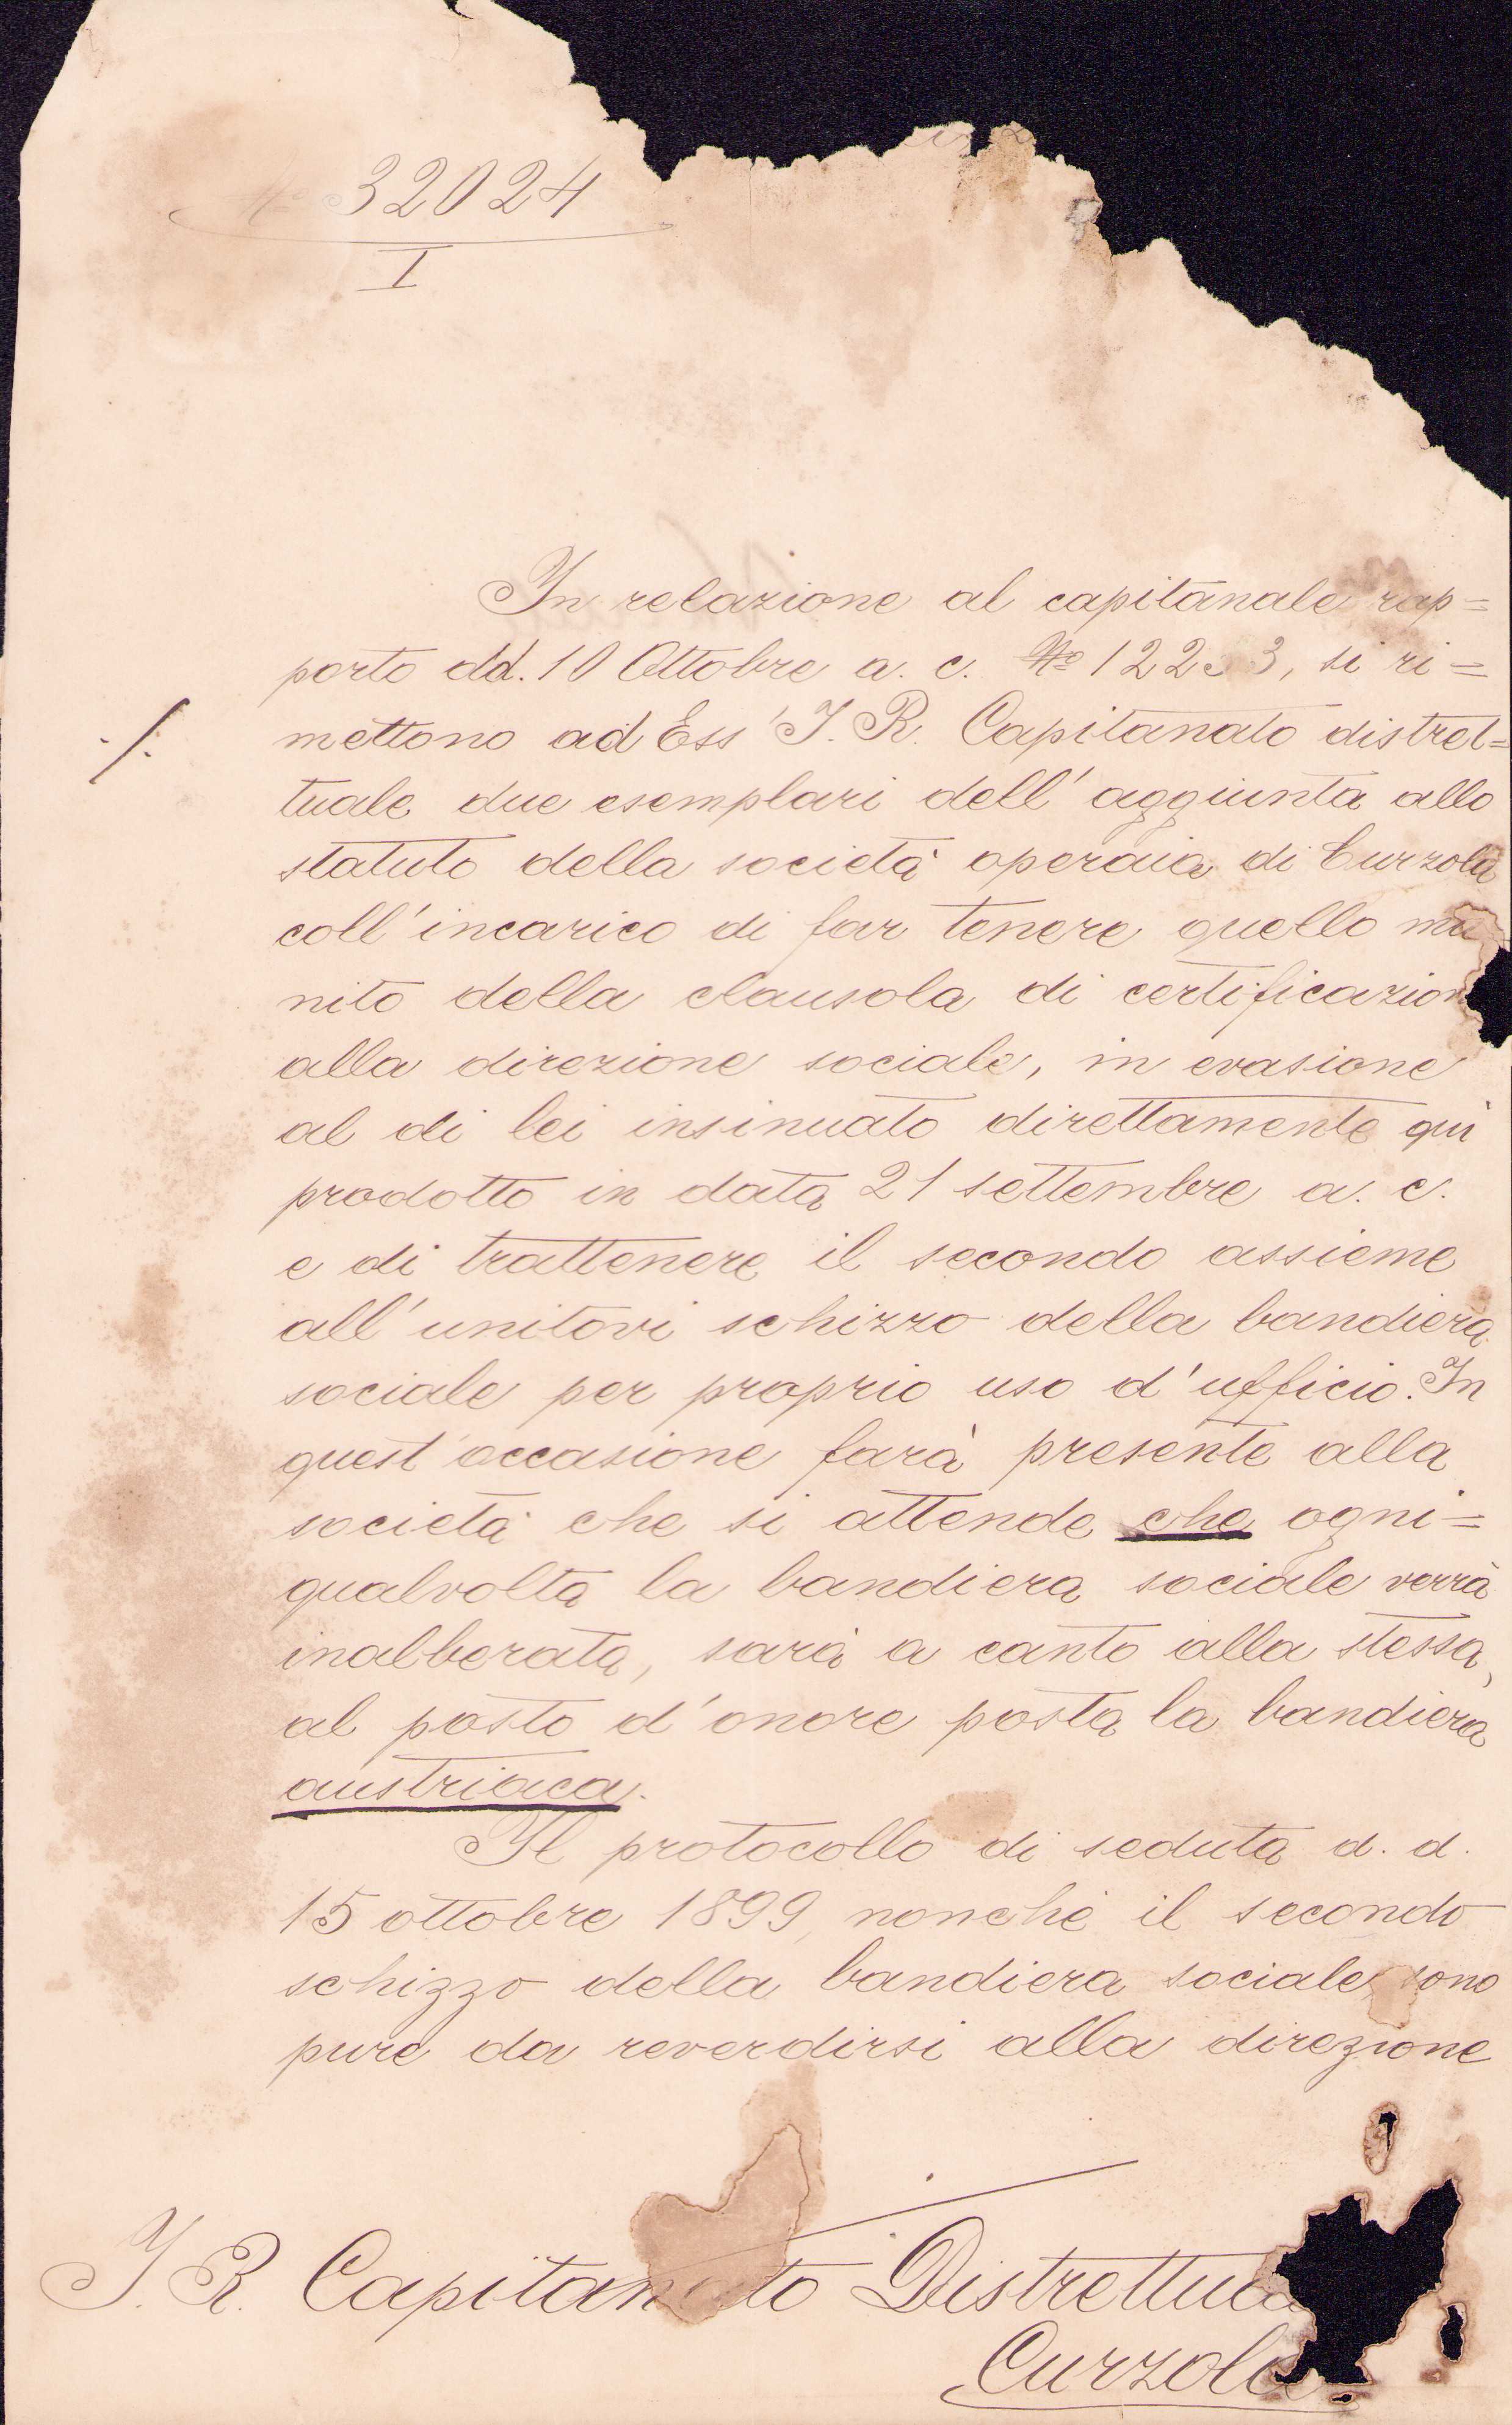 No 32024
I
In relazione al capitanale rap=
porto dd. 10 Ottobre a. c. No si ri=
./.
mettono ad Ess' I. R. Capitanato distret=
tuale due esemplari dell' aggiunta allo
statuto della società operaia di Curzola
coll' incarico di far tenere quello mu
nito della clausola di certificazion
alla direzione sociale, in evasione
al di lei insinuato direttamente qui
prodotto in data 21 settembre a. c.
e di trattenere il secondo assieme
all' unitovi schizzo della bandiera
sociale per proprio uso d' ufficio. In
quest' occasione farà presente alla
società che si attende che ogni=
qualvolta la bandiera sociale verrà
inalberata, sarà a canto alla stessa,
al posto d' onore posta la bandiera
austriaca.
Il protocollo di seduta d. d.
15 ottobre 1899, nonchè il secondo
schizzo della bandiera sociale sono
pure da reverdirsi alla direzione
I. R. Capitanato Distrettua
Curzola